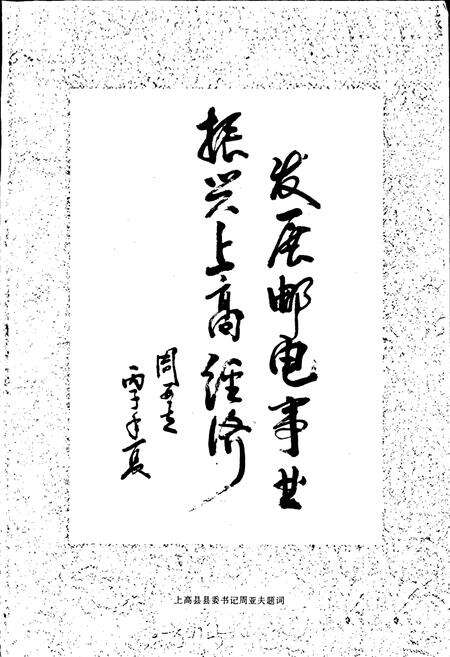 发展邮电事业
振兴上高经济
周亚夫
丙子年夏
上高县县委书记周亚夫题词